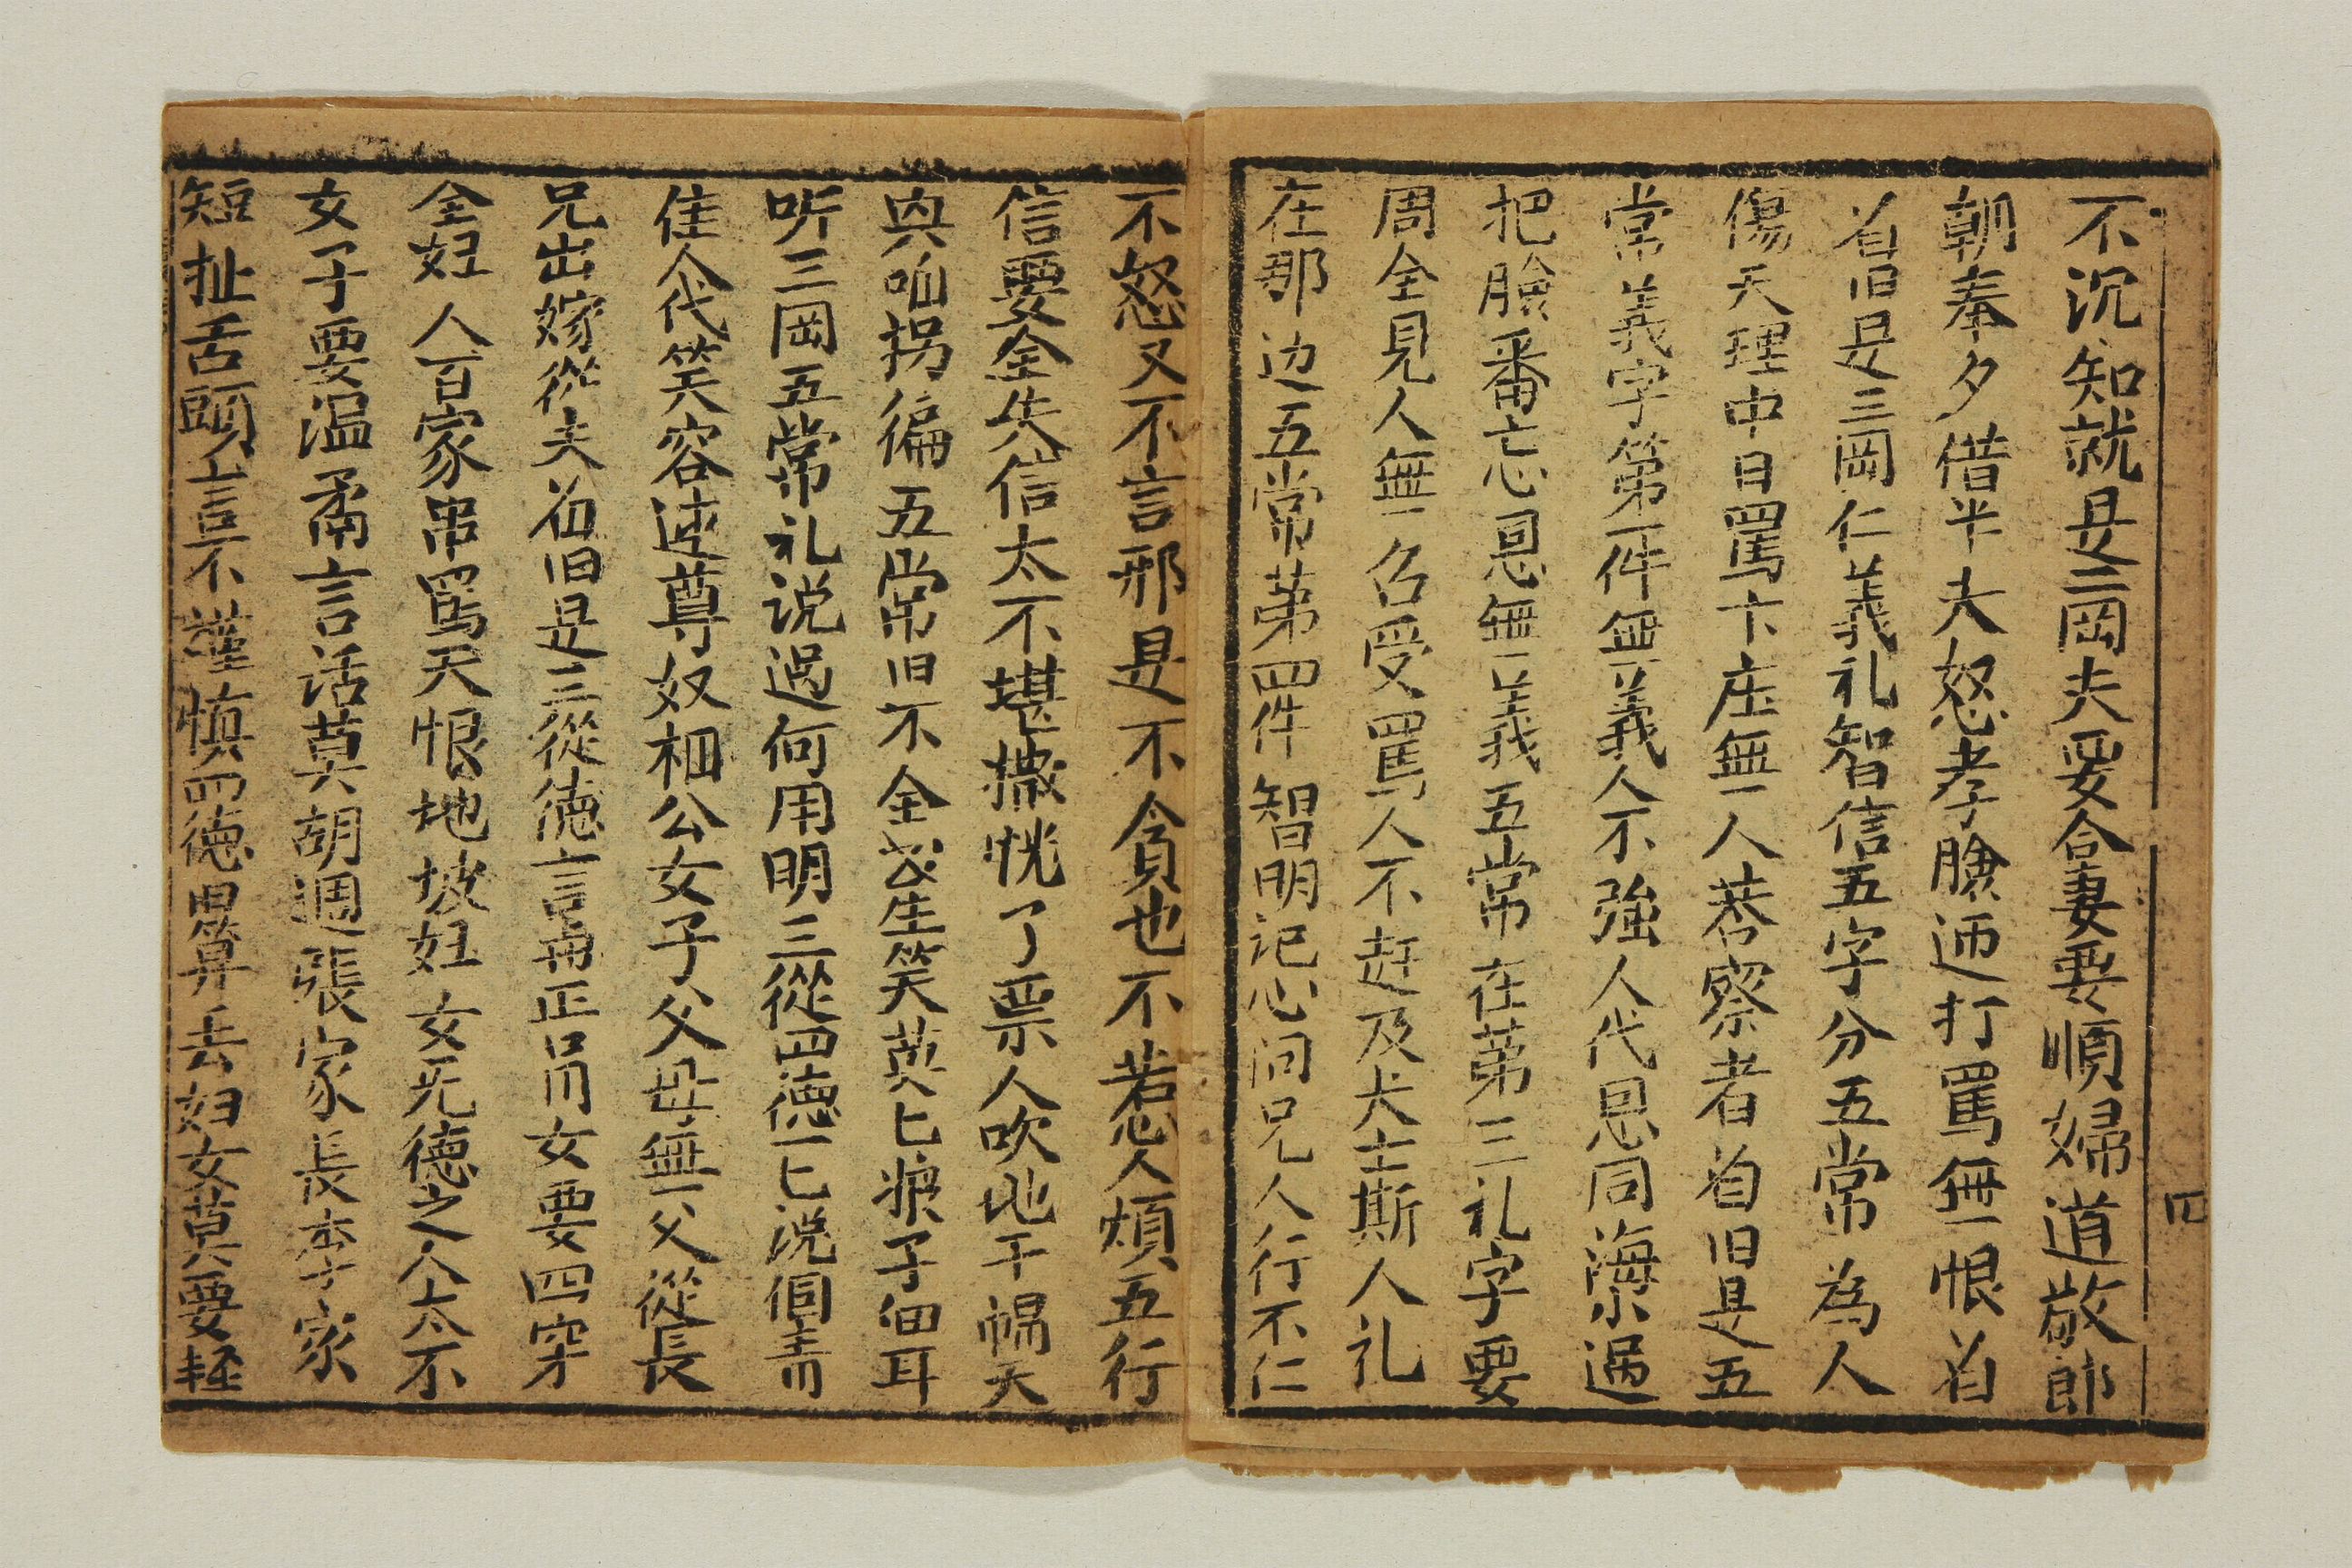 四
不沉知就是三岡夫妥合妻要順婦道敬郎
朝奉夕借半夫怒孝臉逓打罵無恨首
首旧是三岡仁義礼智信五字分五常為人
傷天理中目罵卞庄無一人荅察者首旧是五
常義字第一件無義人不強人代恩同海過
把臉番忘恩無義五常在第三礼字要
周全見人無一名受罵人不赶及犬士斯人礼
在那边五常第四件智明记心问兄人行不仁
不怒又不言邪是不貪也不惹人煩五行
信要全失信太不堪撒恍了票人吹地干帽天
與咱拐徧五常旧不全笑英匕猿子细耳
听三岡五常礼说過何用明三從四德一匕说個青
佳人代笑容連尊奴相公女子父母無父從長
兄出嫁從夫首旧是三從德言再正吊女要四穿
全妇人百家串罵天恨地坡妇女无德之人太不
女子要温柔言话莫胡週張家長李家
短扯舌頭言不謹慎四德畢算丢妇女莫要輕